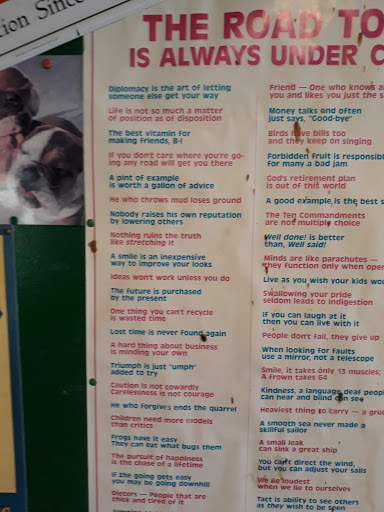 tion Since
THE ROAD TO
IS ALWAYS UNDER C
Diplomacy is the art of letting
someone else get your way
Life is not so much a matter
of position as of disposition
The best vitamin for
making friends, B-I
If you don't care where you're go-
ing any road will get you there
A pint of example
is worth a gallon of advice
He who throws mud loses ground
Nobody raises his own reputation
by lowering others
Nothing ruins the truth
like stretching it
A smile is an inexpensive
way to improve your looks
Ideas won't work unless you do
The future is purchased
by the present
One thing you can't recycle
is wasted time
Lost time is never found again
A hard thing about business
is minding your own
Triumph is just "umph"
added to try
Caution is not cowardly
Carelessness is not courage
He who forgives ends the quarrel
Children need more models
than critics
Frogs have it easy
They can eat what bugs them
The pursuit of happiness
is the chase of a lifetime
If the going gets easy
you may be going downhill
Dieters — People that are
thick and tired of it
Friend — One who knows a
you and likes you just the s
Money talks and often
just says, "Good-bye"
Birds have bills too
and they keep on singing
Forbidden fruit is responsib
for many a bad jam
God's retirement plan
is out of this world
A good example is the best s
The Ten Commandments
are not multiple choice
Well done! is better
than, Well said!
Minds are like parachutes —
they function only when open
Live as you wish your kids wou
Swallowing your pride
seldom leads to indigestion
If you can laugh at it
then you can live with it
People don't fail, they give up
When looking for faults
use a mirror, not a telescope
Smile, it takes only 13 muscles;
A frown takes 64
Kindness, a language deaf peopl
can hear and blind can see
Heaviest thing to carry — a gru
A smooth sea never made a
skillful sailor
A small leak
can sink a great ship
You can't direct the wind,
but you can adjust your sails
We lie loudest
when we lie to ourselves
Tact is ability to see others
as they wish to be seen